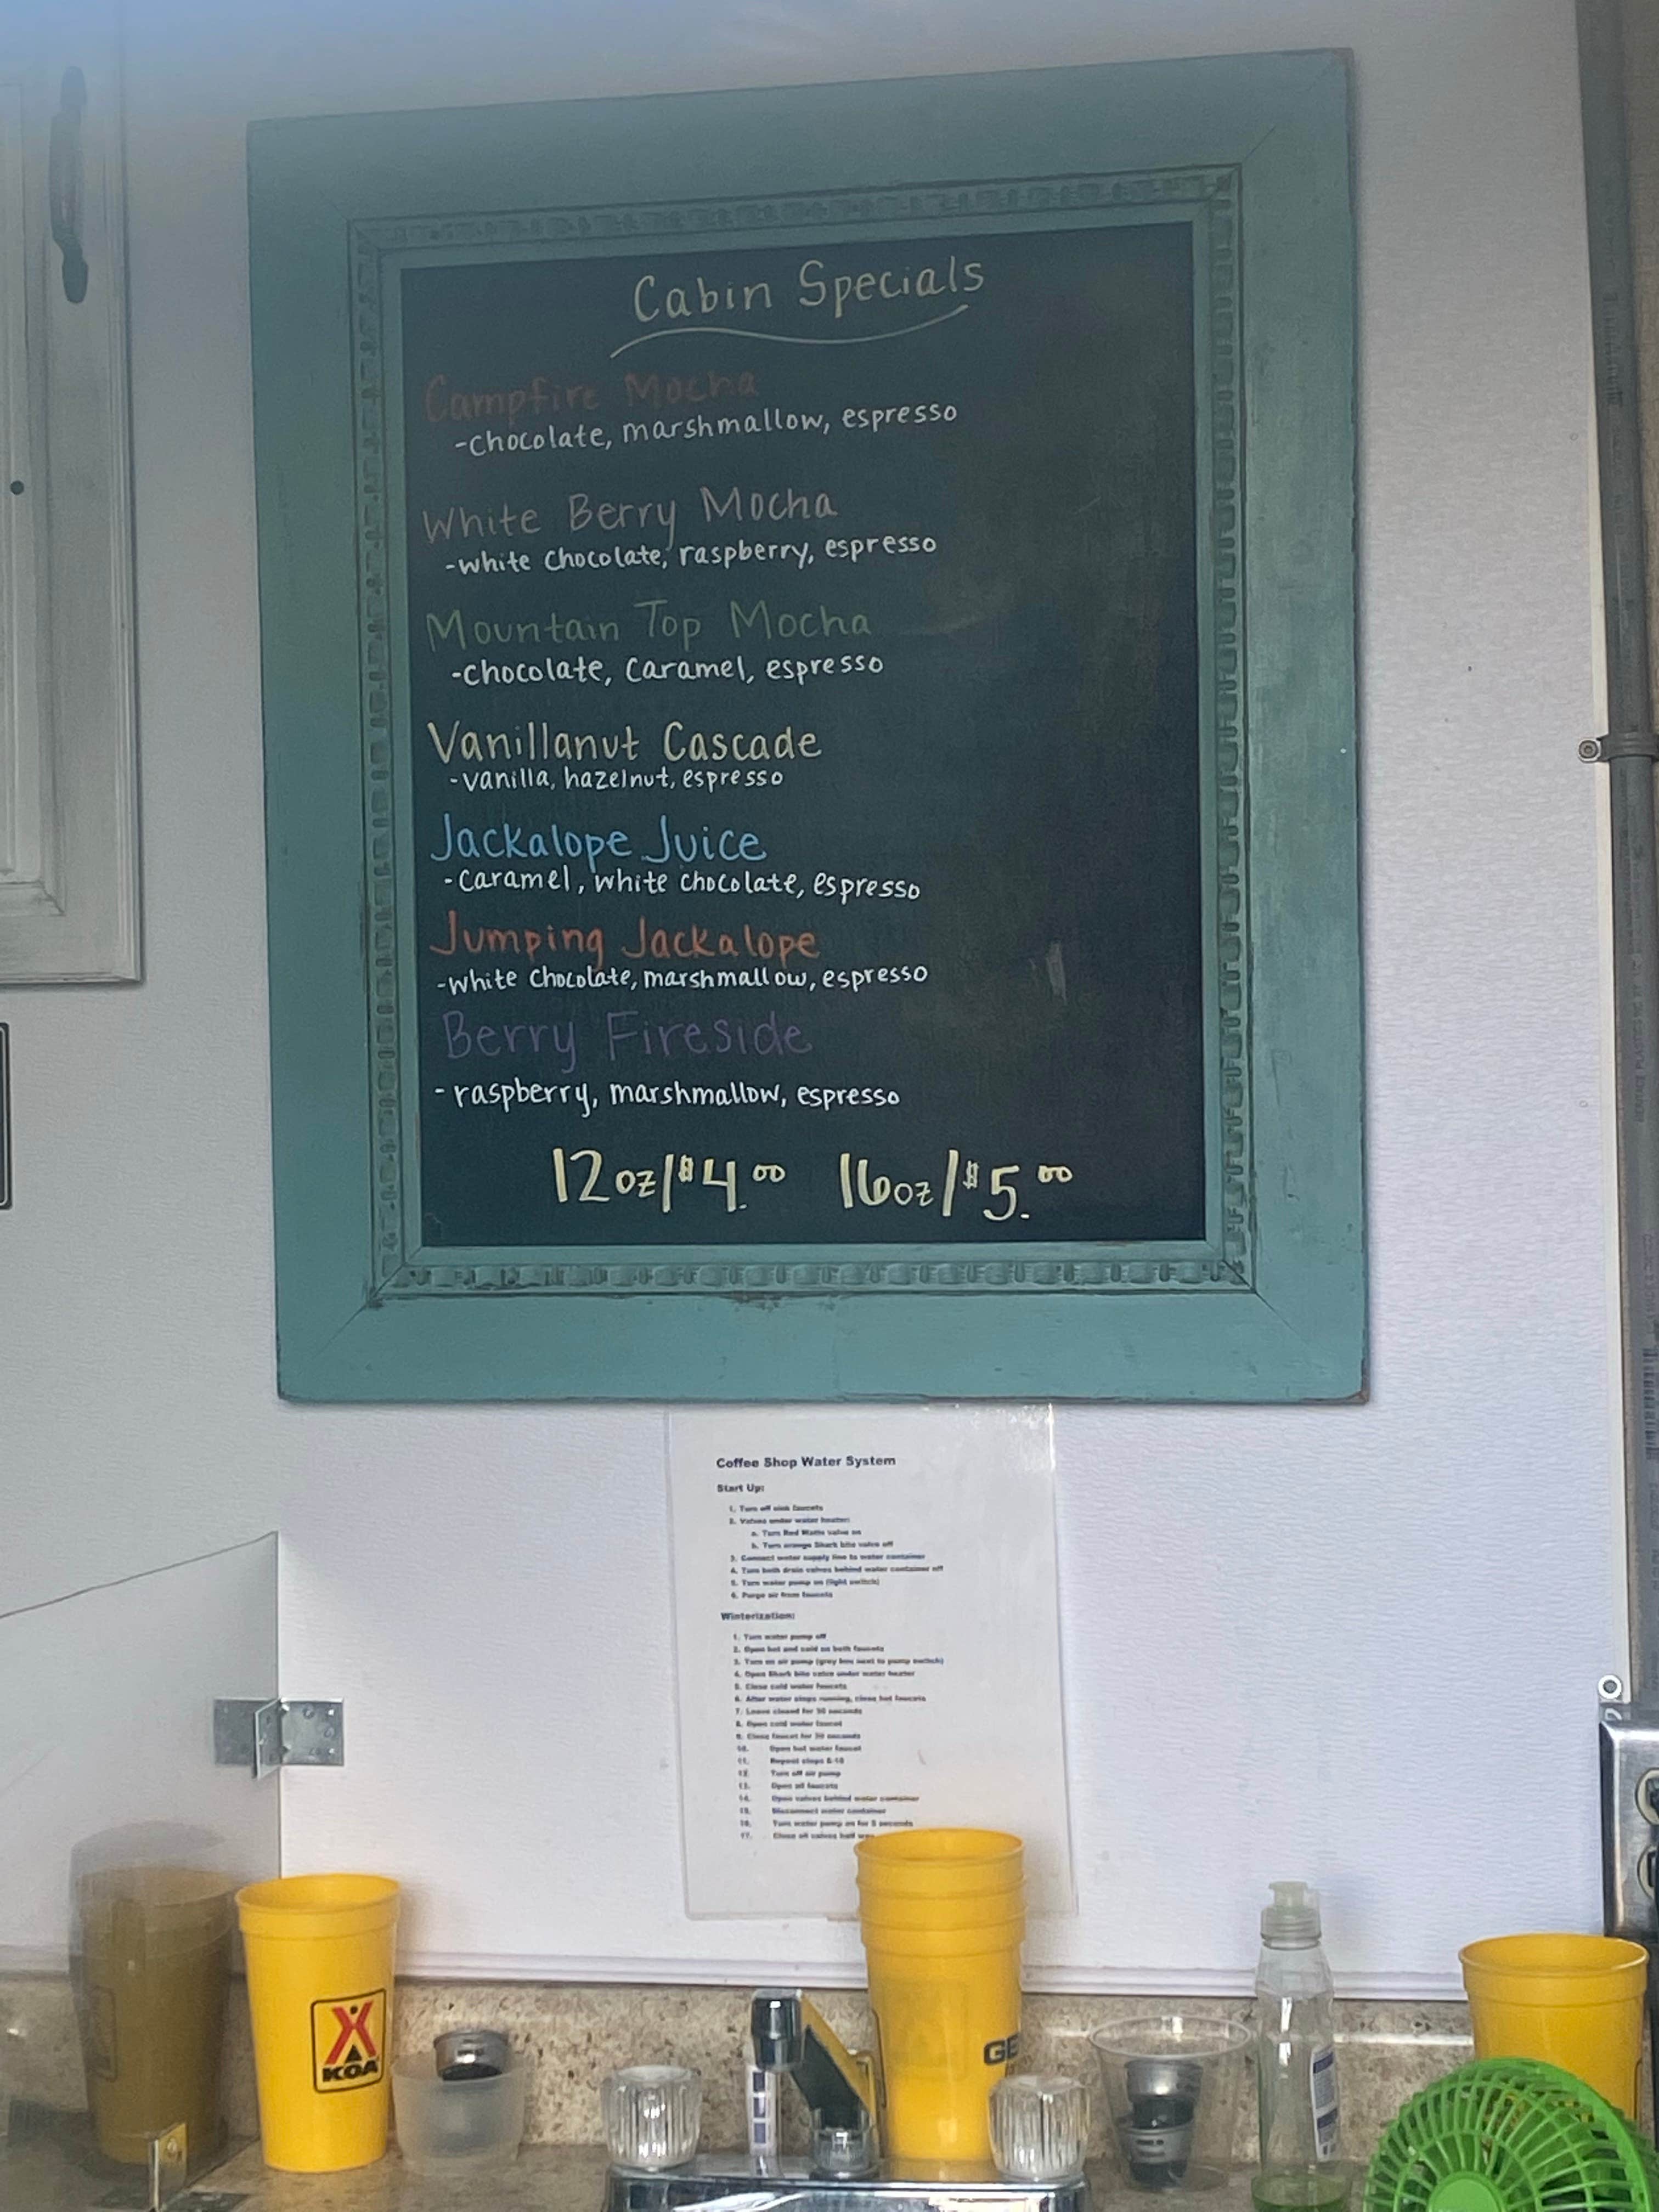 Cabin Specials
Campfire Mocha
-chocolate, marshmallow, espresso
White Berry Mocha
-white chocolate, raspberry, espresso
Mountain Top Mocha
-chocolate, caramel, espresso
Vanillanut Cascade
-vanilla, hazelnut, espresso
Jackalope Juice
-caramel, white chocolate, espresso
Jumping Jackalope
-white chocolate, marshmallow, espresso
Berry Fireside
- raspberry, marshmallow, espresso
12oz/$4.00 16oz/$5.00
Coffee Shop Water System
Start Up:
1. Turn off sink faucets
2. Valves under water heater:
a. Turn Red Watts valve on
b. Turn orange Shark bite valve off
3. Connect water supply line to water container
4. Turn both drain valves behind water container off
5. Turn water pump on (light switch)
6. Purge air from faucets
Winterization:
1. Turn water pump off
2. Open hot and cold on both faucets
3. Turn on air pump (grey box next to pump switch)
4. Open Shark bite valve under water heater
5. Close cold water faucets
6. After water stops running, close hot faucets
7. Leave closed for 30 seconds
8. Open cold water faucet
9. Close faucet for 30 seconds
10. Open hot water faucet
11. Repeat steps 8-10
12. Turn off air pump
13. Open all faucets
14. Open valves behind water container
15. Disconnect water container
16. Turn water pump on for 5 seconds
17. Close all valves half
KOA
GE